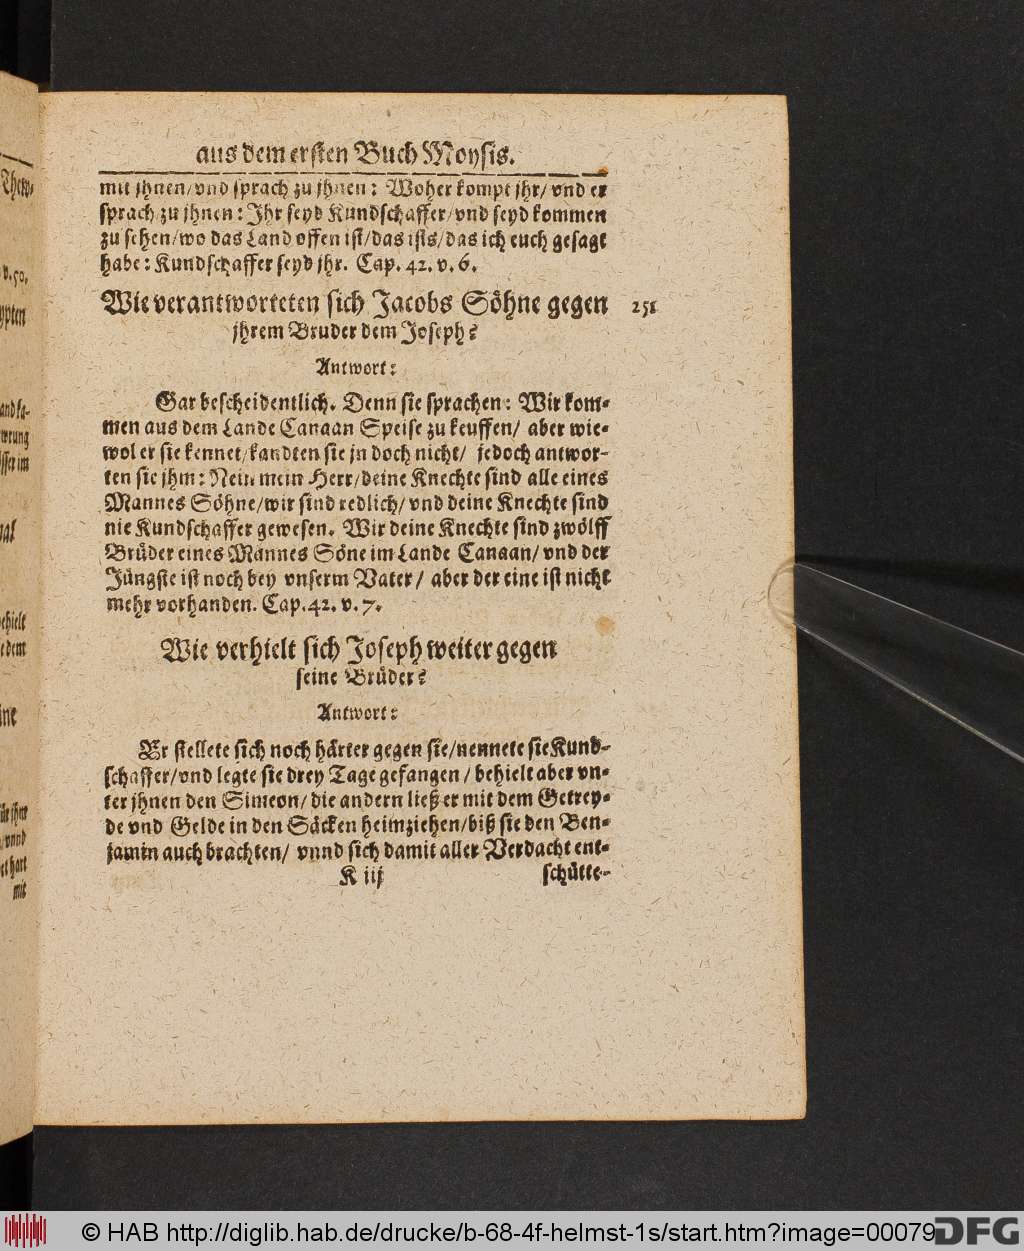 aus dem ersten Buch Moysis.
mit jhnen/vnd sprach zu jhnen: Woher kompt jhr/ vnd er
sprach zu jhnen: Jhr seyd Kundschaffer/vnd seyd kommen
zu sehen/wo das Land offen ist/das ists/das ich euch gesagt
habe: Kundschaffer seyd jhr. Cap. 42. v. 6.
Wie verantworteten sich Jacobs Söhne gegen 251
jhrem Bruder dem Joseph?
Antwort:
Gar bescheidentlich. Denn sie sprachen: Wir kom-
men aus dem Lande Canaan Speise zu keuffen/ aber wie-
wol er sie kennet/kandten sie jn doch nicht/ jedoch antwor-
ten sie jhm: Nein mein Herr/deine Knechte sind alle eines
Mannes Söhne/wir sind redlich/vnd deine Knechte sind
nie Kundschaffer gewesen. Wir deine Knechte sind zwölff
Brüder eines Mannes Söne im Lande Canaan/ vnd der
Jüngste ist noch bey vnserm Vater/ aber der eine ist nicht
mehr vorhanden. Cap. 42. v. 7.
Wie verhielt sich Joseph weiter gegen
seine Brüder?
Antwort:
Er stellete sich noch härter gegen sie/nennete sie Kund-
schaffer/vnd legte sie drey Tage gefangen/ behielt aber vn-
ter jhnen den Simeon/ die andern ließ er mit dem Getrey-
de vnd Gelde in den Säcken heimziehen/biß sie den Ben-
jamin auch brachten/ vnnd sich damit aller Verdacht ent-
K iij schütte-
© HAB http://diglib.hab.de/drucke/b-68-4f-helmst-1s/start.htm?image=00079
DFG